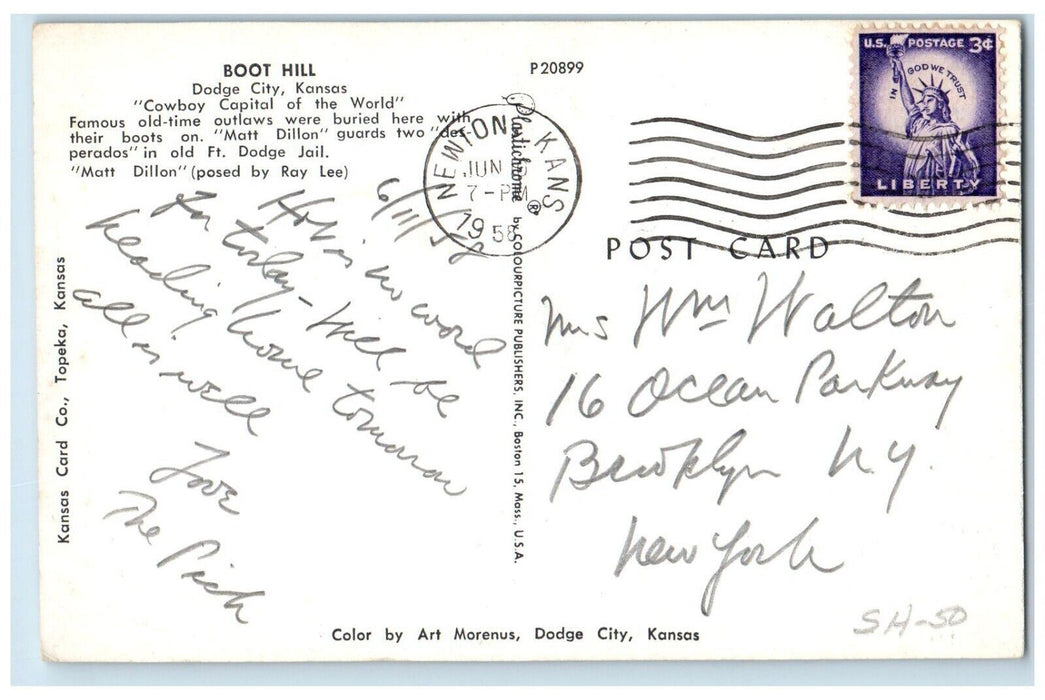 BOOT HILL
Dodge City, Kansas
"Cowboy Capital of the World"
Famous old-time outlaws were buried here with
their boots on. "Matt Dillon" guards two "des-
perados" in old Ft. Dodge Jail.
"Matt Dillon" (posed by Ray Lee)
P20899
NEWTON KANS
JUN
7-PM
1958
U.S. POSTAGE 3¢
IN GOD WE TRUST
LIBERTY
6/11/58
no word
for today - Will be
heading home tomorrow
all is well
Love
The
Kansas Card Co., Topeka, Kansas
Plastichrome ® by COLOURPICTURE PUBLISHERS, INC., Boston 15, Mass., U.S.A.
POST CARD
Mrs Wm Walton
16 Ocean Parkway
Brooklyn N.Y.
New York
SH-50
Color by Art Morenus, Dodge City, Kansas